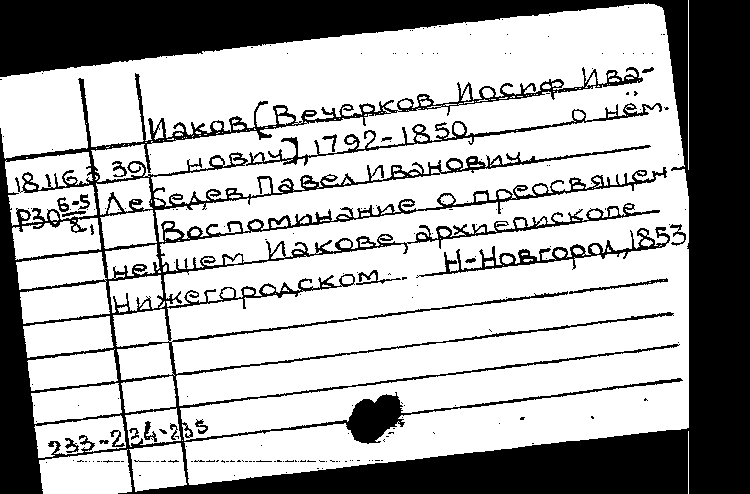 Иаков [Вечерков, Иосиф Ива-
нович], 1792-1850, о нём.
18.116.3.39
Р30 Б-5/8, Лебедев, Павел Иванович.
Воспоминание о преосвящен-
нейшем Иакове, архиепископе
Нижегородском. Н-Новгород, 1853
233-234-235